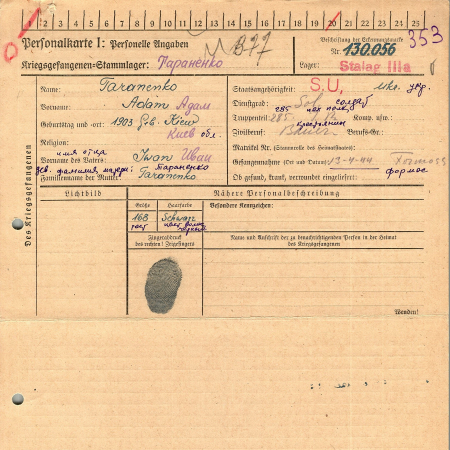 1 2 3 4 5 6 7 8 9 10 11 12 13 14 15 16 17 18 19 20 21 22 23 24 25
Personalkarte I: Personelle Angaben
Kriegsgefangenen-Stammlager: Тараненко
Beschriftung der Erkennungsmarke
Nr. 130.056
353
Lager: Stalag IIIa
Des Kriegsgefangenen
Name: Taranenko
Vorname: Adam Адам
Geburtstag und -ort: 1903 Geb. Kiew
Киев обл.
Religion:
имя отца
Vorname des Vaters: Iwan Иван
дев. фамилия матери: Тараненко
Familienname der Mutter: Taranenko
Staatsangehörigkeit: S.U. Ukr. укр.
Dienstgrad: Sol. солдат
Truppenteil: 285 Komp. usw.:
285 полк
крестьянин
Zivilberuf: Bauer Berufs-Gr.:
Matrikel Nr. (Stammrolle des Heimatstaates):
Gefangennahme (Ort und Datum): 13-4-44
Ob gesund, krank, verwundet eingeliefert:
Lichtbild
Nähere Personalbeschreibung
Größe
Haarfarbe
Besondere Kennzeichen:
168
Schwarz
рост
цвет волос
Fingerabdruck
des rechten Zeigefingers
Name und Anschrift der zu benachrichtigenden Person in der Heimat
des Kriegsgefangenen
Wenden!